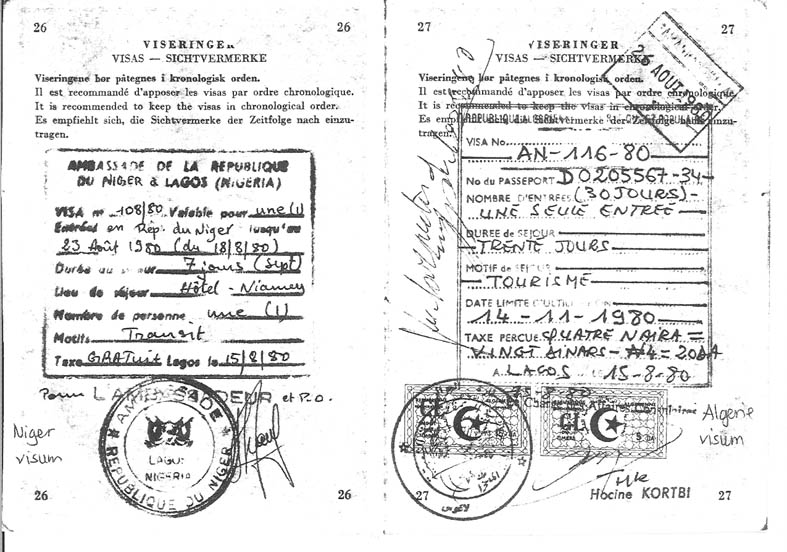 26
26
VISERINGER
VISAS — SICHTVERMERKE
Viseringene bør påtegnes i kronologisk orden.
Il est recommandé d'apposer les visas par ordre chronologique.
It is recommended to keep the visas in chronological order.
Es empfiehlt sich, die Sichtvermerke der Zeitfolge nach einzu-
tragen.
AMBASSADE DE LA REPUBLIQUE
DU NIGER à LAGOS (NIGERIA)
VISA n° 108/80 Valable pour une (1)
Entrées en Rép. du Niger jusqu'au
23 Août 1980 (du 18/8/80)
Durée du séjour 7 jours (sept)
Lieu de séjour Hôtel - Niamey
Nombre de personne une (1)
Motifs Transit
Taxe GRATUIT Lagos le 15/8/80
Pour L'AMBASSADEUR et P.O.
AMBASSADE
REPUBLIQUE DU NIGER
LAGOS
NIGERIA
Niger
visum
26
26
27
27
VISERINGER
VISAS — SICHTVERMERKE
Viseringene bør påtegnes i kronologisk orden.
Il est recommandé d'apposer les visas par ordre chronologique.
It is recommended to keep the visas in chronological order.
Es empfiehlt sich, die Sichtvermerke der Zeitfolge nach einzu-
tragen.
AOUT 1980
VISA No. AN-116-80
No du PASSEPORT D0205567-34-
NOMBRE D'ENTREES (30 JOURS)-
UNE SEULE ENTREE
DUREE de SEJOUR
TRENTE JOURS
MOTIF de SEJOUR
TOURISME
DATE LIMITE D'UTILISATION
14-11-1980
TAXE PERCUE QUATRE NAIRA =
VINGT DINARS- ₦4=20DA
A LAGOS 15-8-80
Algerie
visum
Hocine KORTBI
27
27